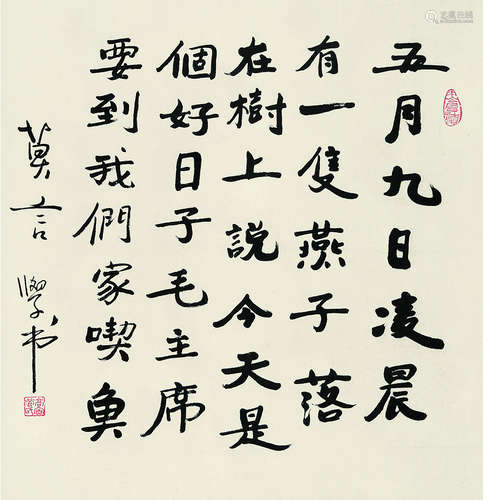 五月九日凌晨
有一隻燕子落
在樹上說今天是
個好日子毛主席
要到我們家喫魚
莫言 學书